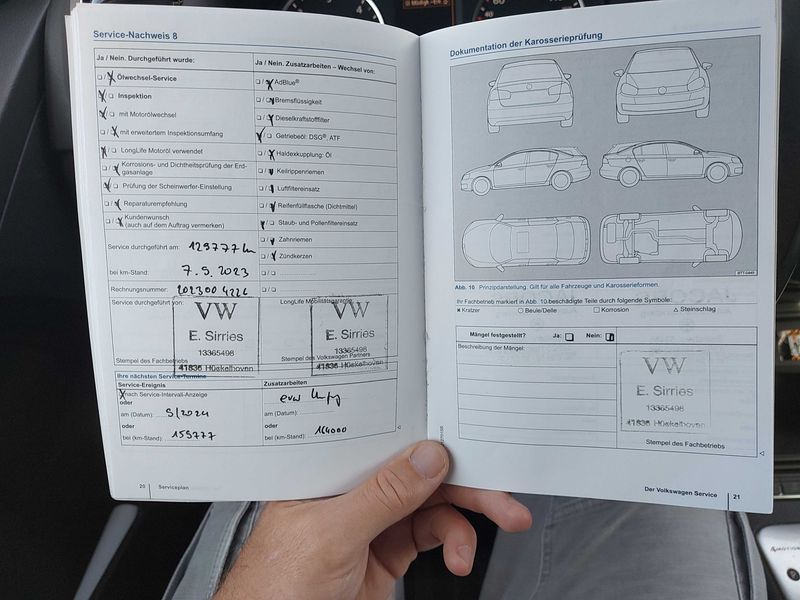 Service-Nachweis 8
Ja / Nein. Durchgeführt wurde:
Ölwechsel-Service
Inspektion
mit Motorölwechsel
mit erweitertem Inspektionsumfang
LongLife Motoröl verwendet
Korrosions- und Dichtheitsprüfung der Erd-
gasanlage
Prüfung der Scheinwerfer-Einstellung
Reparaturempfehlung
Kundenwunsch
(auch auf dem Auftrag vermerken)
Service durchgeführt am: 129777 km
bei km-Stand: 7.9.2023
Rechnungsnummer: 202300 4226
Service durchgeführt von:
VW
E. Sirries
13365498
Stempel des Fachbetrieb
41836 Hückelhoven
Ja / Nein. Zusatzarbeiten – Wechsel von:
AdBlue®
Bremsflüssigkeit
Dieselkraftstofffilter
Getriebeöl: DSG®, ATF
Haldexkupplung: Öl
Keilrippenriemen
Luftfiltereinsatz
Reifenfüllflasche (Dichtmittel)
Staub- und Pollenfiltereinsatz
Zahnriemen
Zündkerzen
LongLife Mobilitätsgarantie
VW
E. Sirries
13365498
Stempel des Volkswagen Partners
41836 Hückelhoven
Ihre nächsten Service-Termine
Service-Ereignis
nach Service-Intervall-Anzeige
oder
am (Datum): 9/2024
oder
bei (km-Stand): 159777
Zusatzarbeiten
am (Datum):
oder
bei (km-Stand): 164000
20 Serviceplan
Dokumentation der Karosserieprüfung
Abb. 10 Prinzipdarstellung. Gilt für alle Fahrzeuge und Karosserieformen.
Ihr Fachbetrieb markiert in Abb. 10 beschädigte Teile durch folgende Symbole:
Kratzer Beule/Delle Korrosion Steinschlag
Mängel festgestellt? Ja: Nein:
Beschreibung der Mängel:
VW
E. Sirries
13365498
41836 Hückelhoven
Stempel des Fachbetriebs
Der Volkswagen Service 21
4MOTION